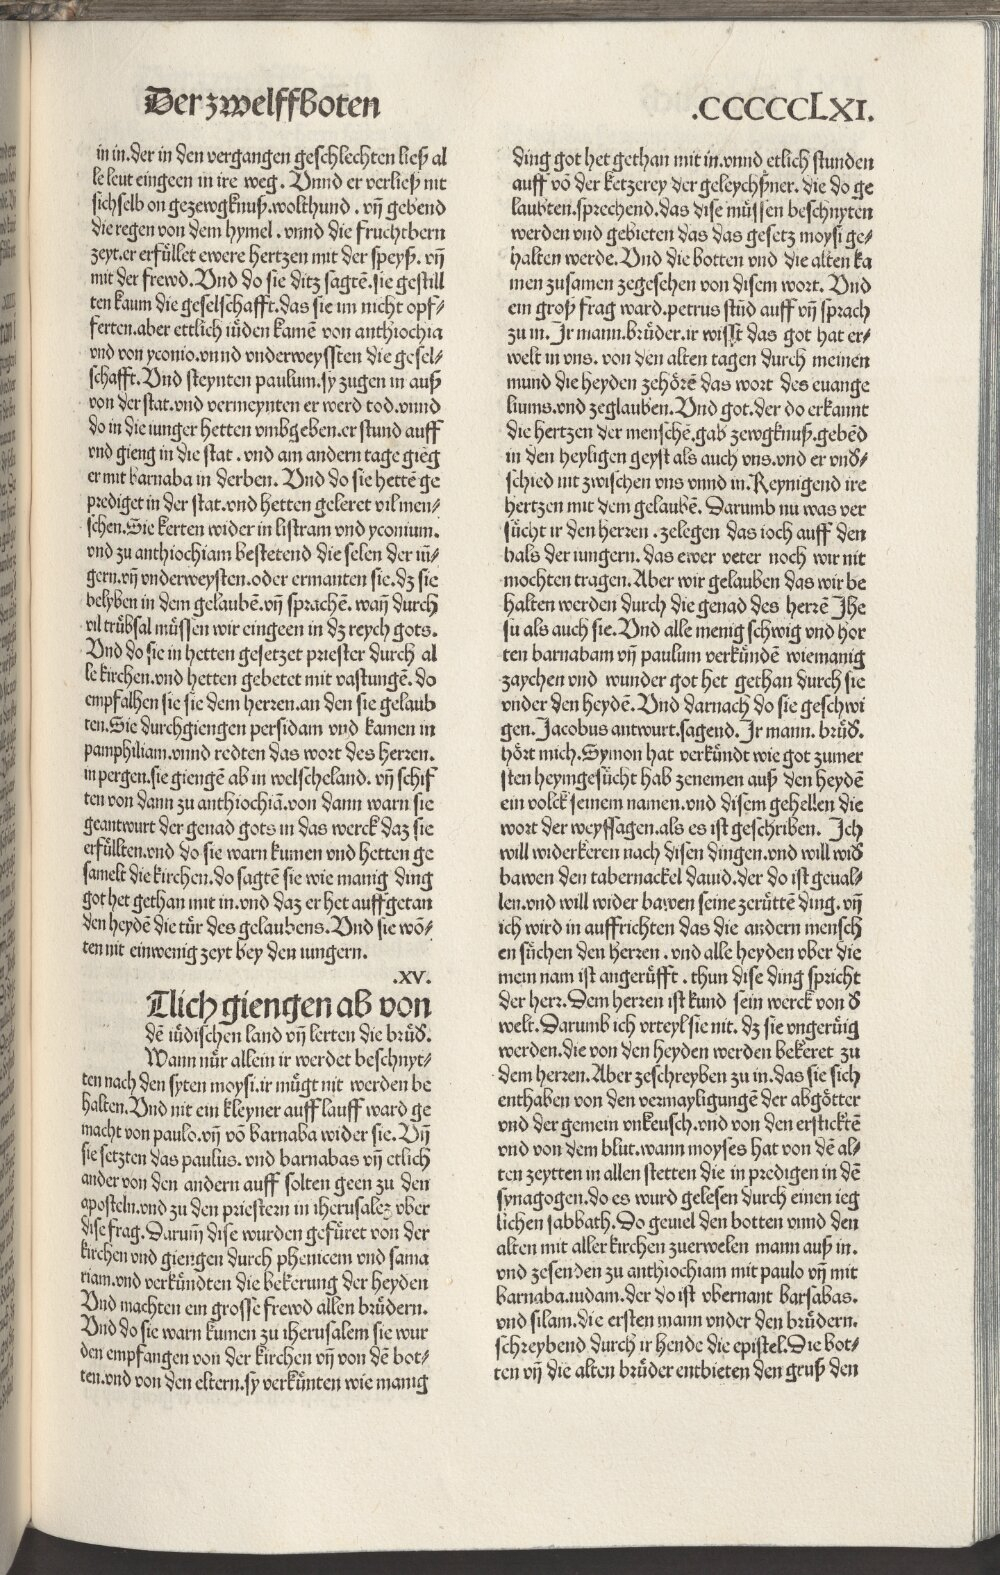 Der zwelffboten
.CCCCCCLXI.
in in.der in den vergangen geschlechten ließ al
le leut eingeen in ire weg. Vnnd er verließ nit
sichselb on gezewgknuß.wolthund . vñ gebend
die regen von dem hymel . vnnd die fruchtbern
zeyt.er erfüllet ewere hertzen mit der speyß. vñ
mit der frewd. Vnd do sie ditz sagtē.sie gestill
ten kaum die geselschafft.das sie im nicht opf⸗
ferten.aber ettlich iüden kamē von anthiochia
vnd von yconio.vnnd vnderweyssten die gesel⸗
schafft. Vnd steynten paulum.sy zugen in auß
von der stat.vnd vermeynten er werd tod.vnnd
do in die iunger hetten vmbgeben.er stund auff
vnd gieng in die stat . vnd am andern tage giēg
er mit barnaba in derben. Vnd do sie hettē ge
prediget in der stat.vnd hetten geleret vil men⸗
schen.Sie kerten wider in listram vnd yconium.
vnd zu anthiochiam bestetend die selen der iū⸗
gern.vñ vnderweysten.oder ermanten sie.dz sie
belyben in dem gelaubē.vñ sprachē. wañ durch
vil trübsal müssen wir eingeen in dz reych gots.
Vnd do sie in hetten gesetzet priester durch al
le kirchen.vnd hetten gebetet mit vastungē. do
empfalhen sie sie dem herren.an den sie gelaub
ten.Sie durchgiengen persidam vnd kamen in
pamphiliam.vnnd redten das wort des herren.
in pergen.sie giengē ab in welscheland. vñ schif
ten von dann zu anthiochiā.von dann warn sie
geantwurt der genad gots in das werck daz sie
erfüllten.vnd do sie warn kumen vnd hetten ge
samelt die kirchen.do sagtē sie wie manig ding
got het gethan mit in.vnd daz er het auffgetan
den heydē die tür des gelaubens. Vnd sie wō⸗
ten nit einwenig zeyt bey den iungern.
.XV.
Tlich giengen ab von
dē iüdischen land vñ lerten die brüđ.
Wann nür allein ir werdet beschnyt⸗
ten nach den syten moysi.ir mügt nit werden be
halten. Vnd nit ein kleyner aufflauff ward ge
macht von paulo.vñ vō barnaba wider sie. Vñ
sie setzten das paulus. vnd barnabas vñ etlich
ander von den andern auff solten geen zu den
aposteln.vnd zu den priestern in iherusalez vber
dise frag. Darum̄ dise wurden gefüret von der
kirchen vnd giengen durch phenicem vnd sama
riam.vnd verkündten die bekerung der heyden
Vnd machten ein grosse frewd allen brüdern.
Vnd do sie warn kumen zu iherusalem sie wur
den empfangen von der kirchen vñ von dē bot⸗
ten.vnd von den eltern.sy verkünten wie manig
ding got het gethan mit in.vnnd etlich stunden
auff vō der ketzerey der geleychßner. die do ge
laubten.sprechend.das dise müssen beschnyten
werden vnd gebieten das das gesetz moysi ge⸗
halten werde. Vnd die botten vnd die alten ka
men zusamen zegesehen von disem wort. Vnd
ein groß frag ward.petrus stūd auff vñ sprach
zu in. Ir mann.brüder.ir wisst das got hat er⸗
welt in vns. von den alten tagen durch meinen
mund die heyden zehörē das wort des euange
liums.vnd zeglauben. Vnd got.der do erkannt
die hertzen der menschē.gab zewgknuß.gebēd
in den heyligen geyst als auch vns.vnd er vnđ⸗
schied nit zwischen vns vnnd in.Reynigend ire
hertzen mit dem gelaubē. Darumb nu was ver
sücht ir den herren . zelegen das ioch auff den
hals der iungern. das ewer veter noch wir nit
mochten tragen. Aber wir gelauben das wir be
halten werden durch die genad des herrē Ihe
su als auch sie. Vnd alle menig schwig vnd hor
ten barnabam vñ paulum verkündē wiemanig
zaychen vnd wunder got het gethan durch sie
vnder den heydē. Vnd darnach do sie geschwi
gen. Jacobus antwurt.sagend. Ir mann. brüđ.
hört mich. Symon hat verkündt wie got zumer
sten heymgesücht hab zenemen auß den heydē
ein volck seinem namen.vnd disem gehellen die
wort der weyssagen.als es ist geschriben. Ich
will widerkeren nach disen dingen.vnd will wiđ
bawen den tabernackel dauid.der do ist geual⸗
len.vnd will wider bawen seine zerüttē ding. vñ
ich wird in auffrichten das die andern mensch
en süchen den herren . vnd alle heyden vber die
mein nam ist angerüfft . thun dise ding spricht
der herr. Dem herren ist kund sein werck von đ
welt. Darumb ich vrteyl sie nit. dz sie vngerüig
werden.die von den heyden werden bekeret zu
dem herren. Aber zeschreyben zu in.das sie sich
enthaben von den vermayligungē der abgötter
vnd der gemein vnkeusch.vnd von den erstecktē
vnd von dem blut.wann moyses hat von dē al⸗
ten zeytten in allen stetten die in predigen in dē
synagogen.do es wurd gelesen durch einen ieg
lichen sabbath. Do geuiel den botten vnnd den
alten mit aller kirchen zuerwelen mann auß in.
vnd zesenden zu anthiochiam mit paulo vñ mit
barnaba.iudam.der do ist vbernant barsabas.
vnd silam.die ersten mann vnder den brüdern.
schreybend durch ir hende die epistel.Die bot⸗
ten vñ die alten brüder entbieten den gruß den